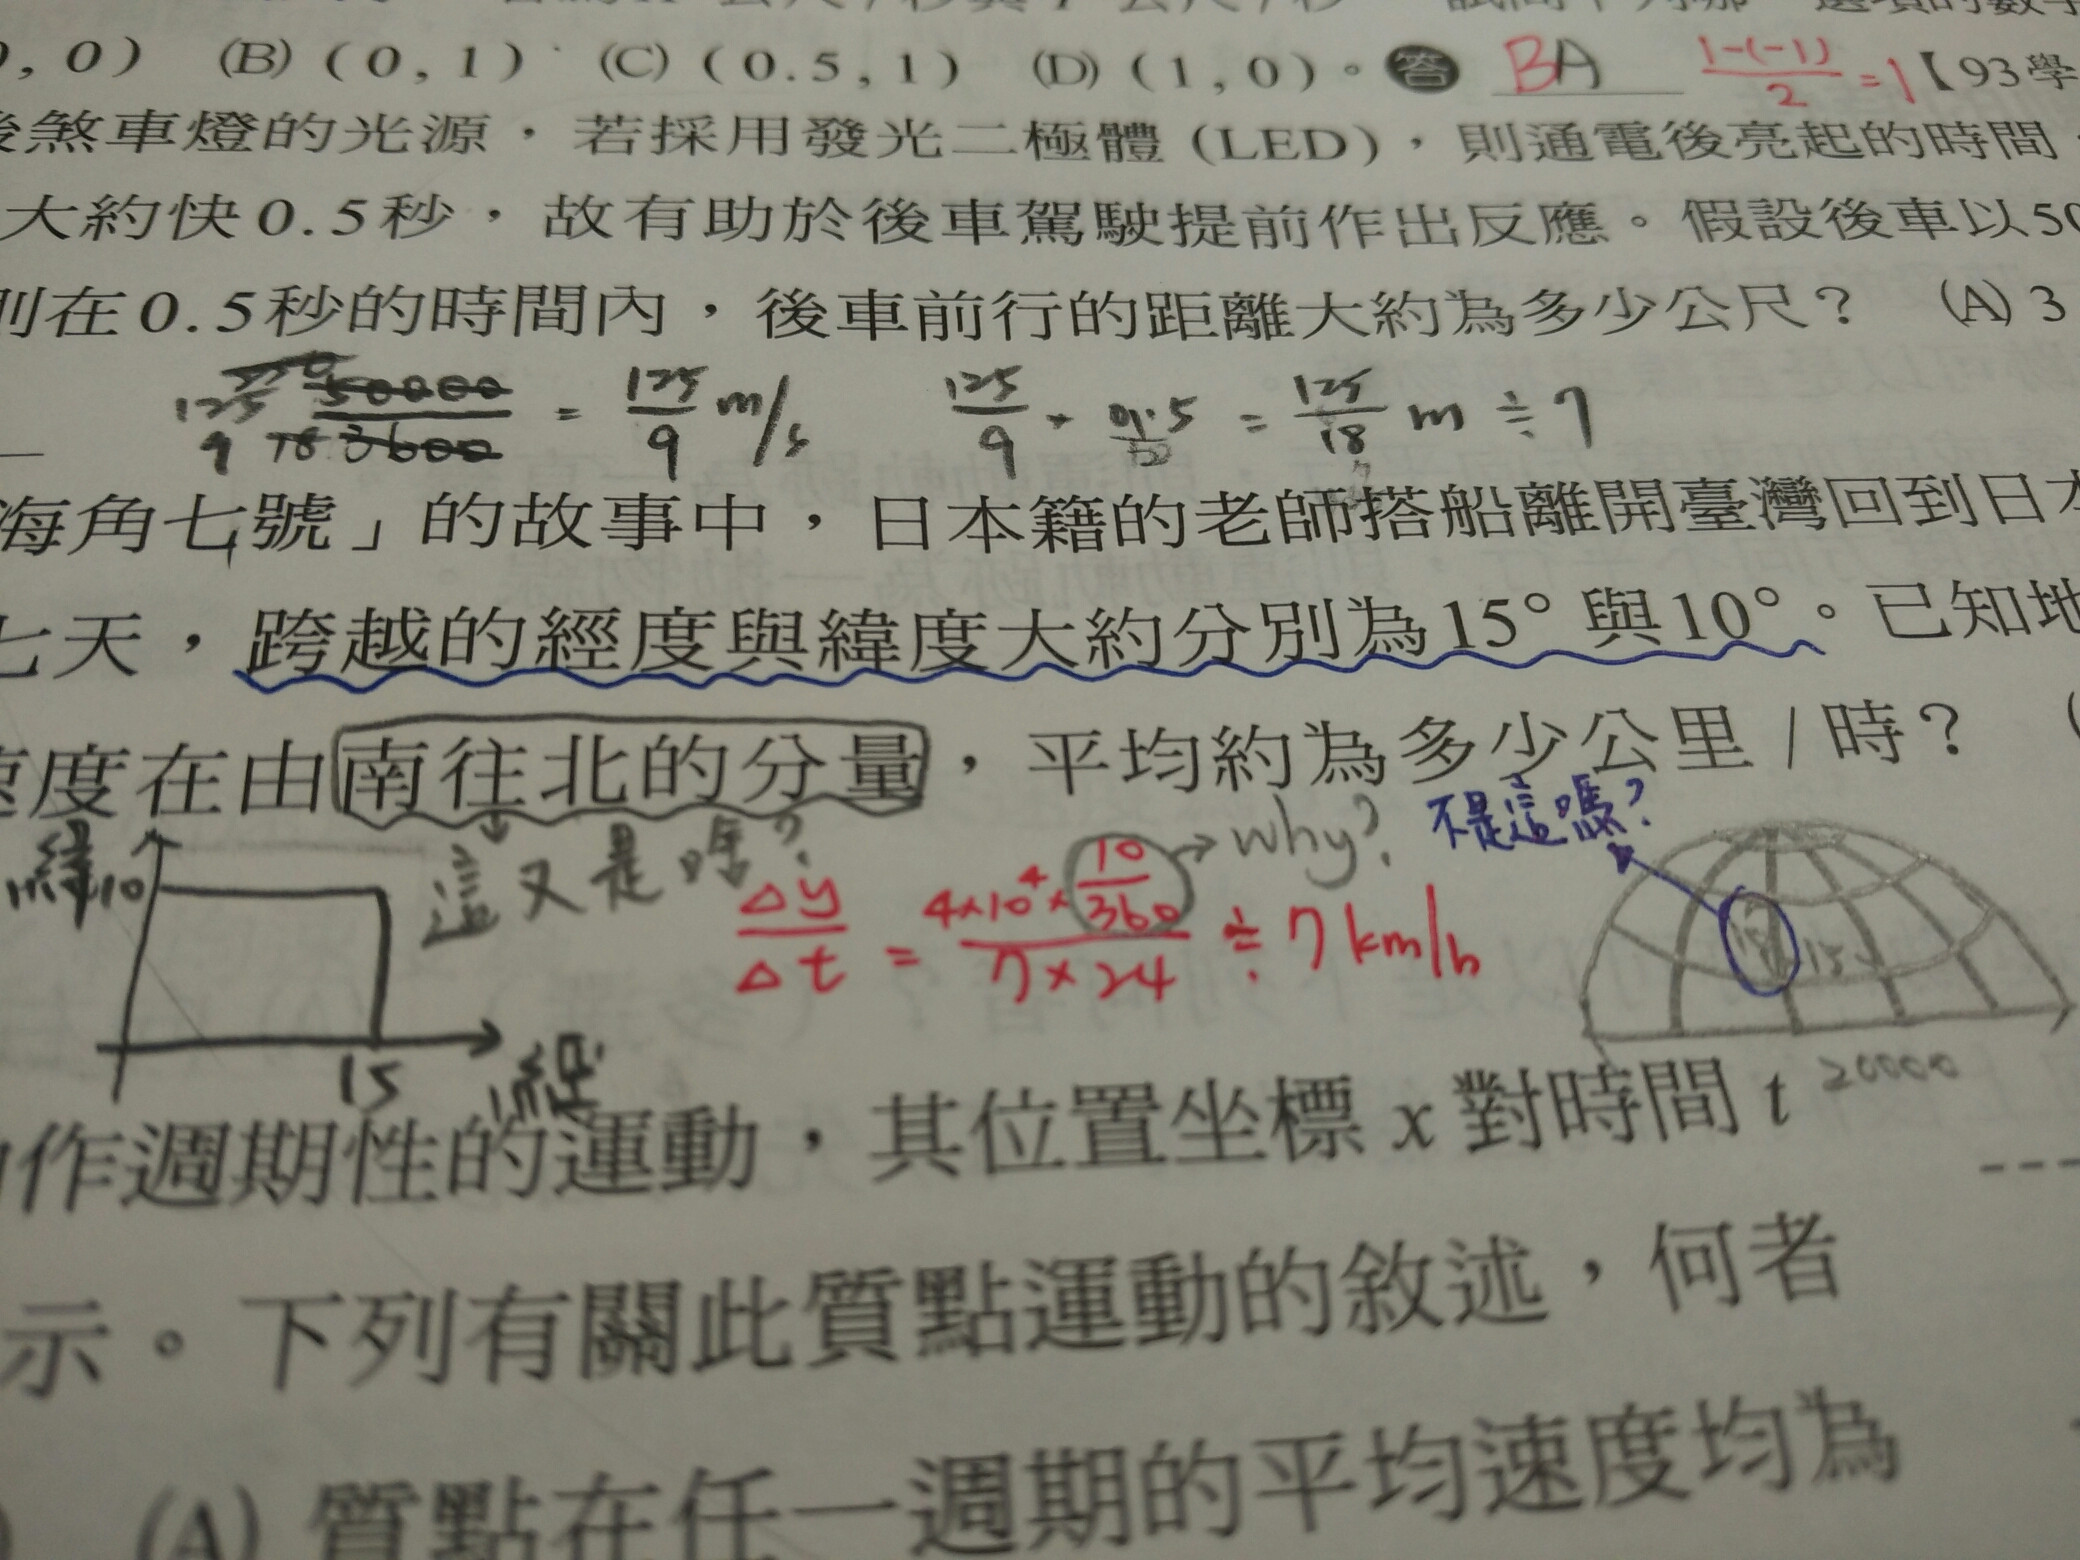 , 0) (B) (0, 1) (C) (0.5, 1) (D) (1, 0)。 答 BA 1-(-1)/2 =1【93學
後煞車燈的光源，若採用發光二極體 (LED)，則通電後亮起的時間
大約快0.5秒，故有助於後車駕駛提前作出反應。假設後車以50
則在0.5秒的時間內，後車前行的距離大約為多少公尺？ (A) 3
125/9 50000/3600 = 125/9 m/s 125/9 × 0.5 = 125/18 m ≑ 7
海角七號」的故事中，日本籍的老師搭船離開臺灣回到日本
七天，跨越的經度與緯度大約分別為15°與10°。已知地
速度在由南往北的分量，平均約為多少公里 / 時？ (
緯 10 這又是啥? why? 不是這嗎?
Δy/Δt = 4×10⁴×10/360 / 7×24 ≑ 7 km/h 15
15 經 20000
作週期性的運動，其位置坐標 x 對時間 t
示。下列有關此質點運動的敘述，何者
(A) 質點在任一週期的平均速度均為